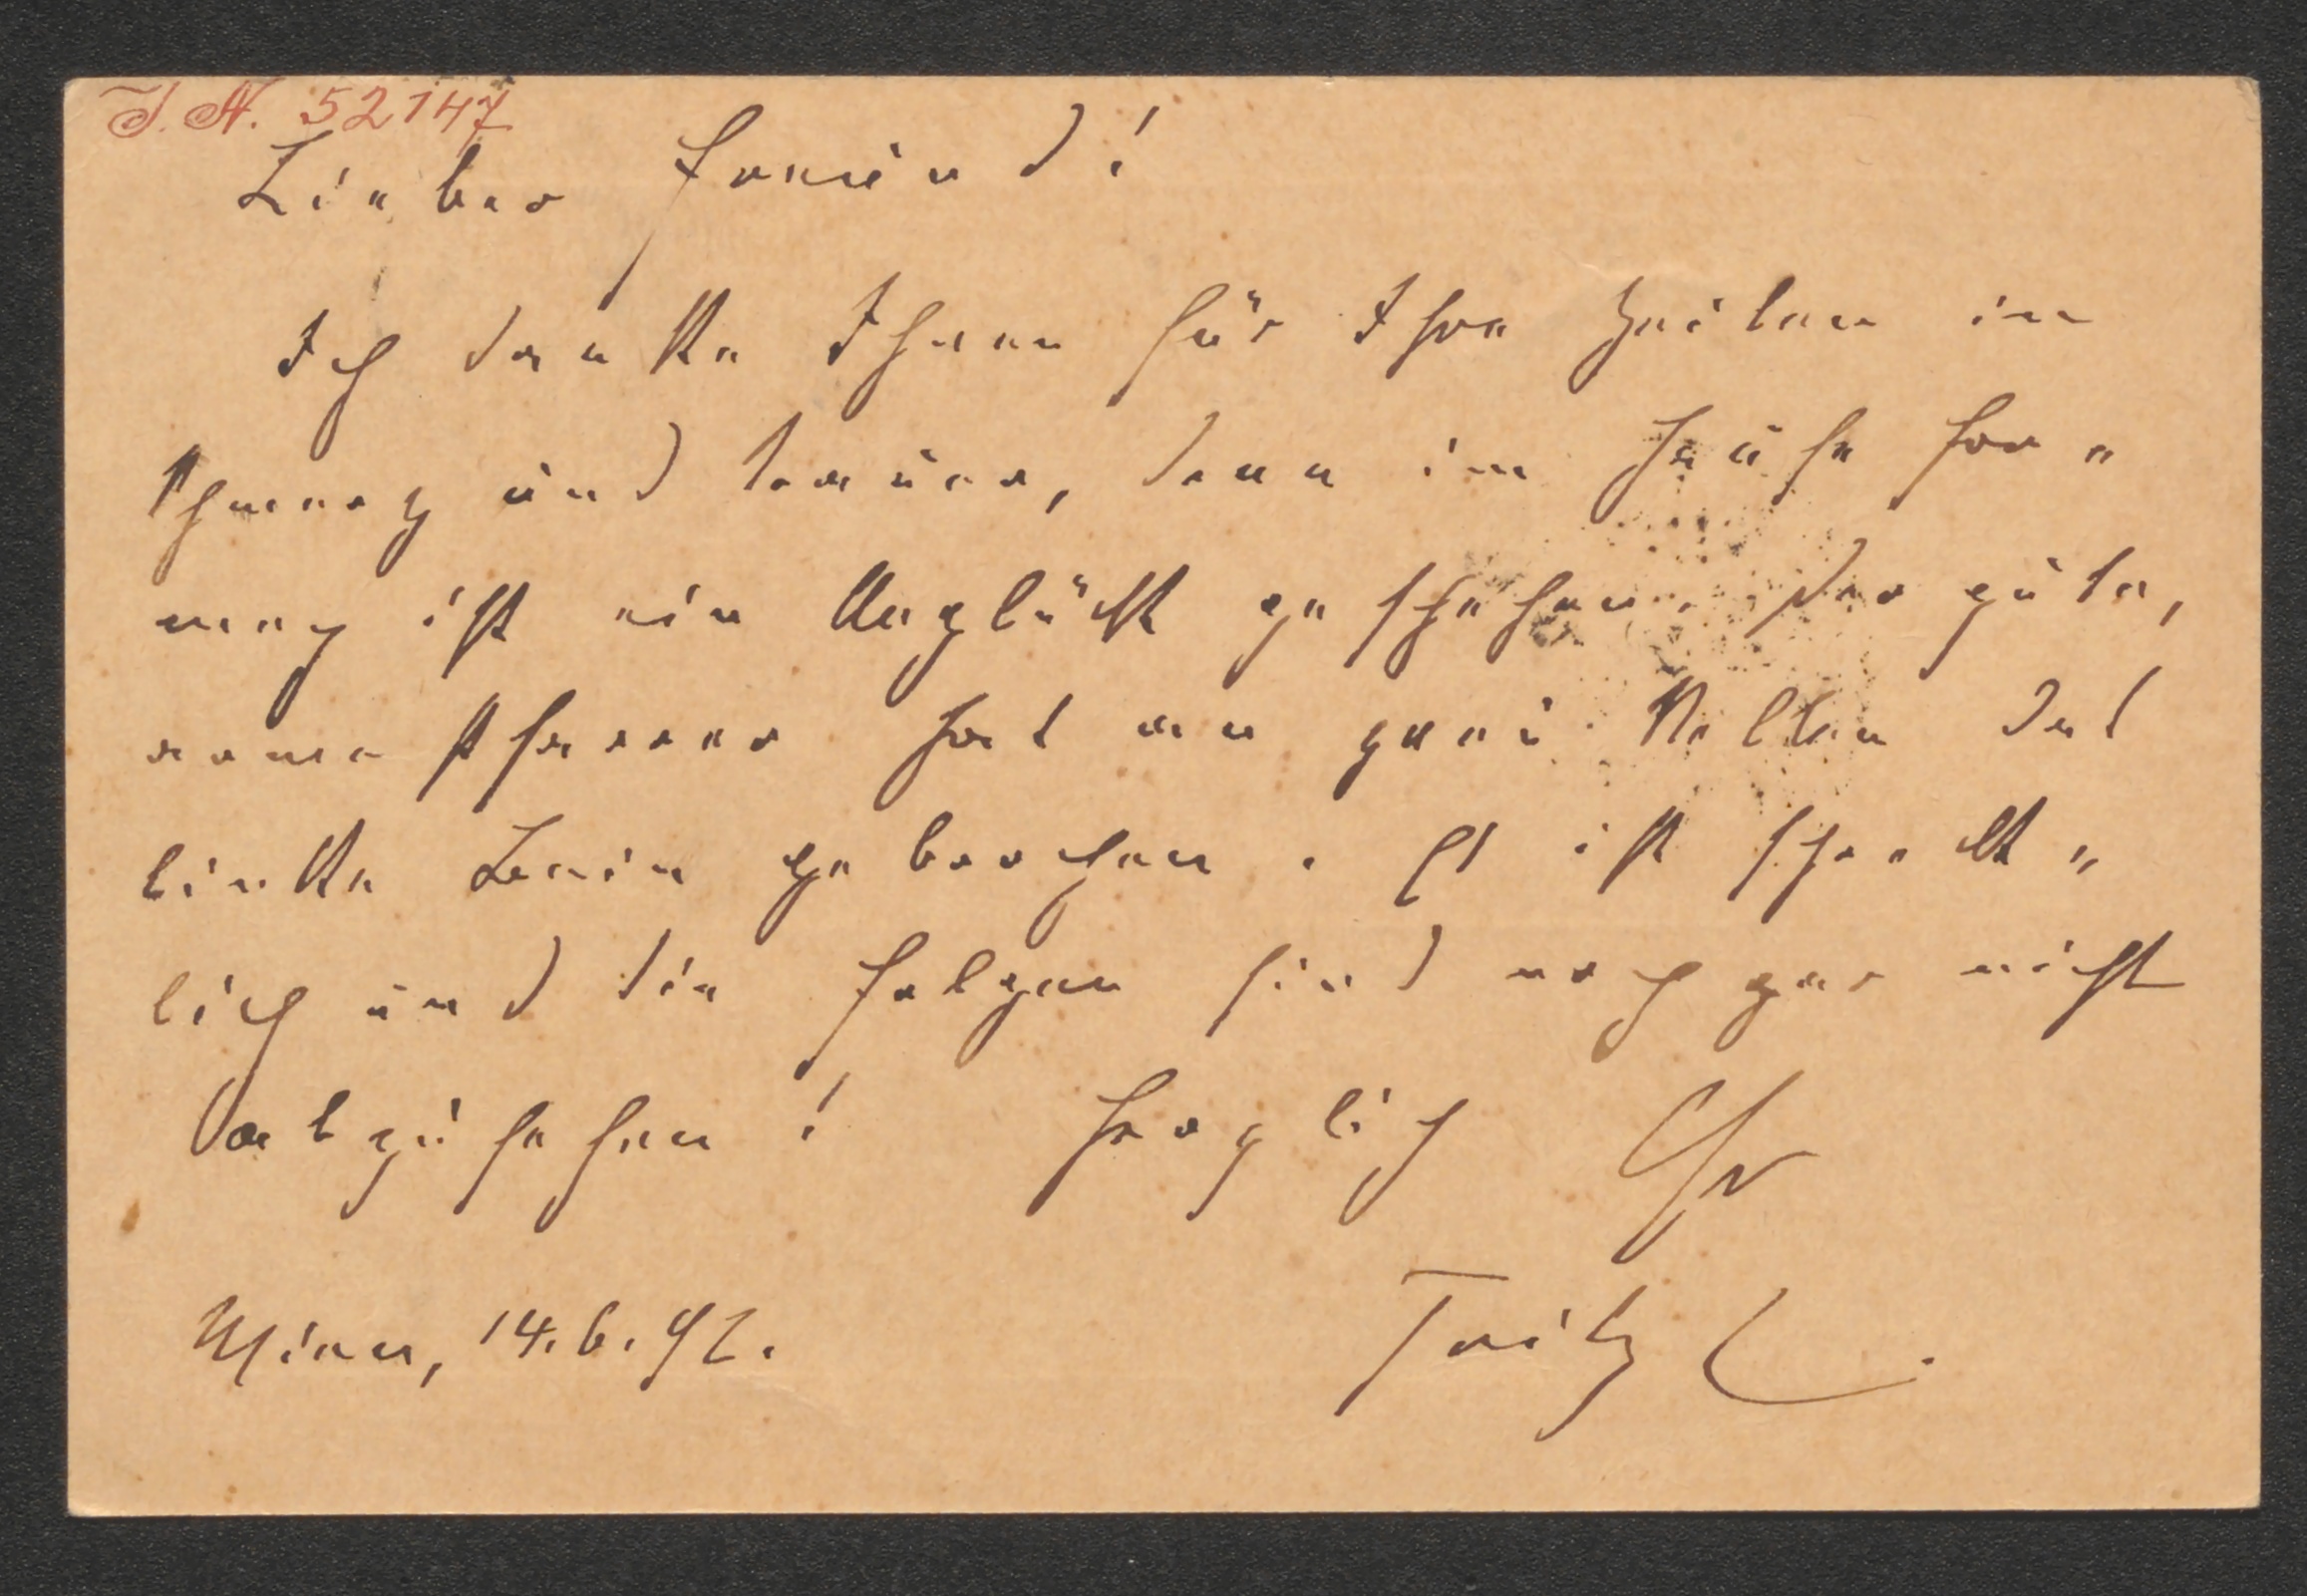 I. N. 52147
Lieber Freund!
Ich danke Ihnen für Ihre Zeilen in
Schmerz und Trauer, denn im Hause For=
mey ist ein Unglück geschehen. Der gute,
arme Pfarrer hat an zwei Stellen das
linke Bein gebrochen. Es ist schreck=
lich und die Folgen sind noch gar nicht
abzusehen! Herzlich Ihr
Wien, 14.6.92. Fritz L.